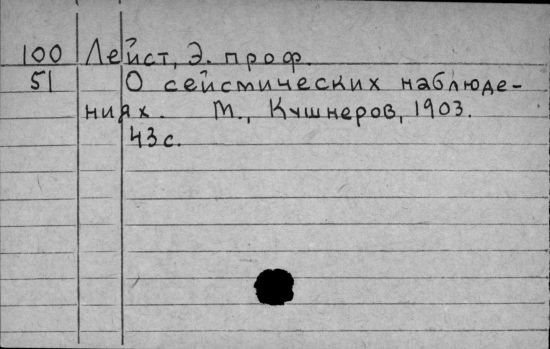 100 Лейст, Э. проф.
51 О сейсмических наблюде-
ниях. М., Кушнеров, 1903.
43 с.